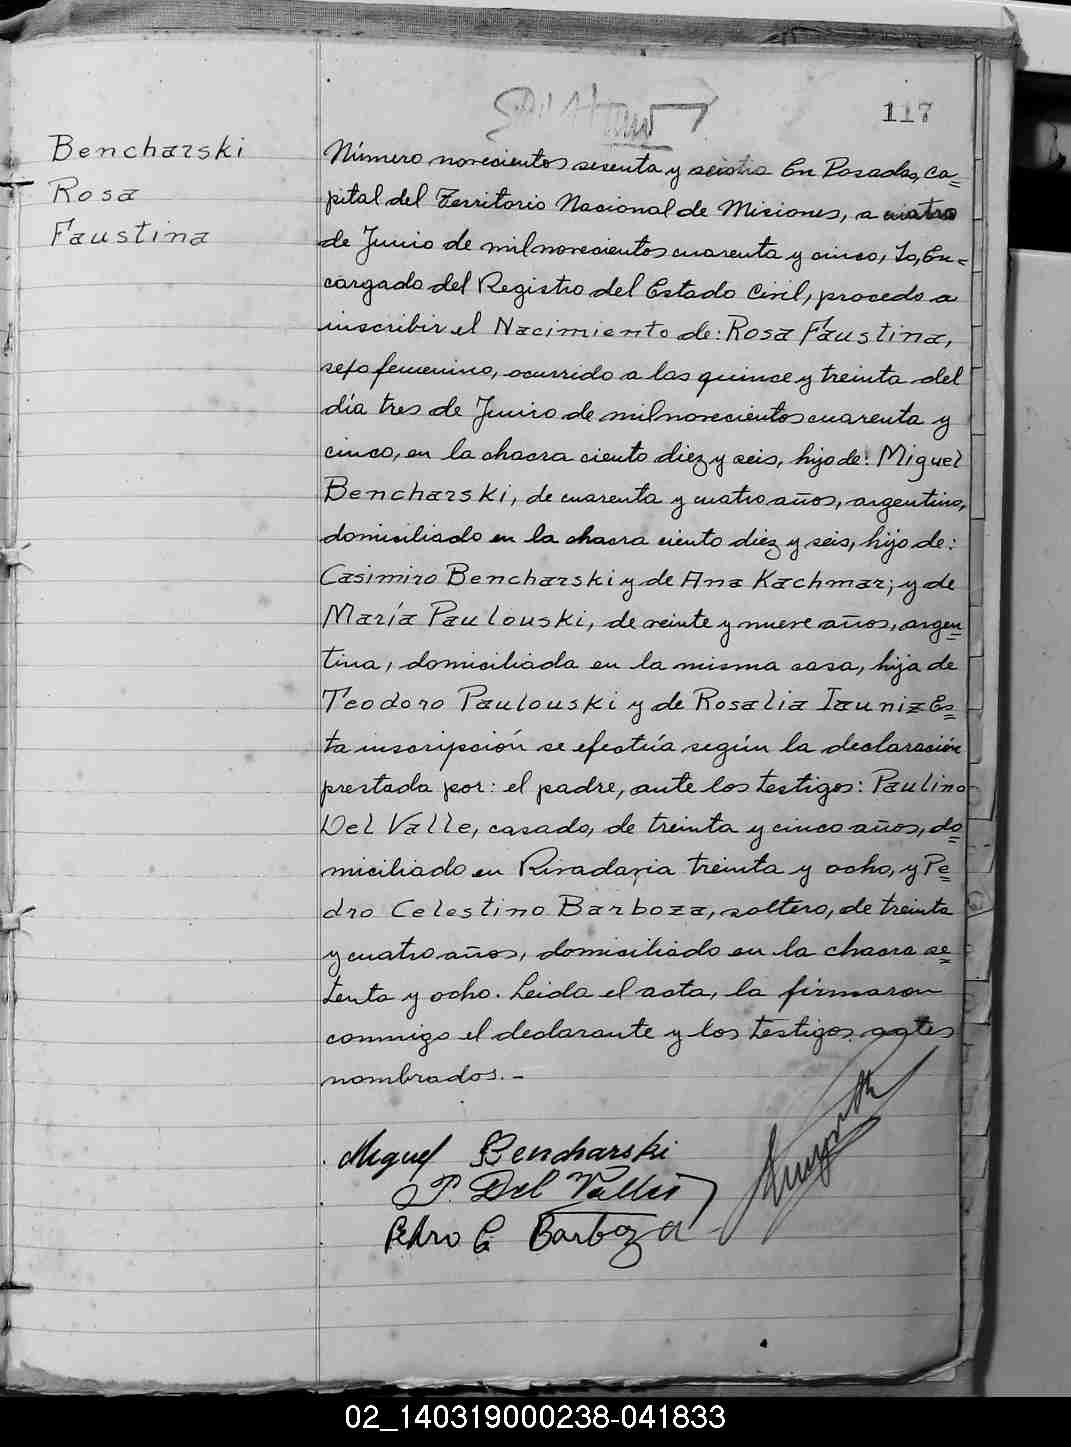 117
Bencharski
Rosa
Faustina
Número novecientos sesenta y En Posadas, ca=
pital del Territorio Nacional de Misiones, a cuatro
de Junio de mil novecientos cuarenta y cinco, Yo, En=
cargado del Registro del Estado Civil, procedo a
inscribir el Nacimiento de: Rosa Faustina,
sexo femenino, ocurrido a las quince y treinta del
día tres de Junio de mil novecientos cuarenta y
cinco, en la chacra ciento diez y seis, hijo de: Miguel
Bencharski, de cuarenta y cuatro años, argentino,
domiciliado en la chacra ciento diez y seis, hijo de:
Casimiro Bencharski y de Ana Kachmar; y de
María Paulouski, de veinte y nueve años, argen=
tina, domiciliada en la misma casa, hija de
Teodoro Paulouski y de Rosalia Iauniz Es=
ta inscripción se efectúa según la declaración
prestada por: el padre, ante los testigos: Paulino
Del Valle, casado, de treinta y cinco años, do=
miciliado en Rivadavia treinta y ocho, y Pe=
dro Celestino Barboza, soltero, de treinta
y cuatro años, domiciliado en la chacra se=
tenta y ocho. Leida el acta, la firmaron
conmigo el declarante y los testigos antes
nombrados.-
Miguel Bencharski
P. Del Valle
Pedro C. Barboza
02_140319000238-041833